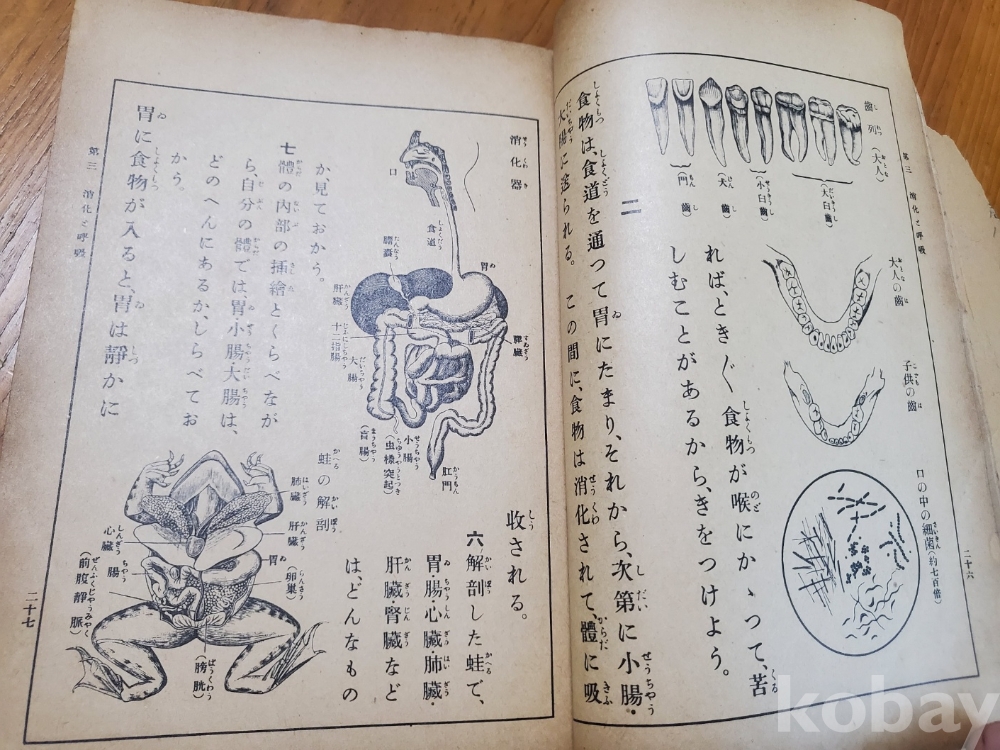 第三 消化と呼吸
二十六
歯列(大人)
(大臼歯)
(小臼歯)
(犬歯)
(門歯)
大人の歯
子供の歯
口の中の細菌(約七百倍)
れば、ときどく食物が喉にかゝつて、苦
しむことがあるから、きをつけよう。
二
食物は、食道を通つて胃にたまり、それから、次第に小腸・
大腸に送られる。この間に、食物は消化されて、體に吸
收される。
消化器
口
食道
胃
膽囊
肝臓
十二指腸
大腸
脾臓
小腸
(盲腸)
(虫樣突起)
肛門
六 解剖した蛙で、
胃・腸・心臓・肺臓・
肝臓・腎臓など
は、どんなもの
か、見ておかう。
七 體の内部の插繪とくらべなが
ら、自分の體では、胃・小腸・大腸は、
どのへんにあるか、しらべてお
かう。
胃に食物が入ると、胃は靜かに
蛙の解剖
肺臓
肝臓
心臓
胃
腸
(卵巢)
(前腹靜脈)
(膀胱)
第三 消化と呼吸
二十七
kobay